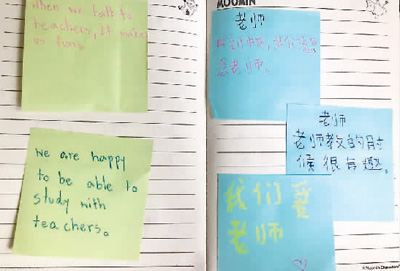 when we talk to
teachers, it makes
us fun.
we are happy
to be able to
study with
teachers.
MOOMIN
老师
我们
老师。
老师
老师教的时
候很有趣。
我们爱
老师
© Moomin Characters